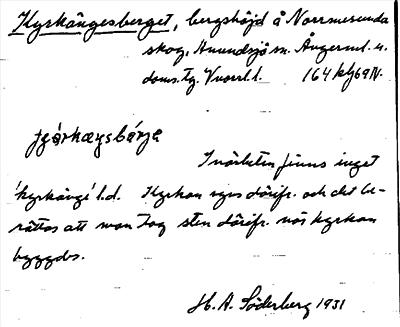 Kyrkängesberget, bergshöjd å Norrmesunda
skog, Anundsjö sn. Ångerml. n.
doms. tg. V.norrl. l. 164 klg 69 N.
I närheten finns inget
'kyrkänge' l.d. Kyrkan syns därifr. och det be-
rättas att man tog sten därifr. när kyrkan
byggdes.
H. A. Söderberg 1931